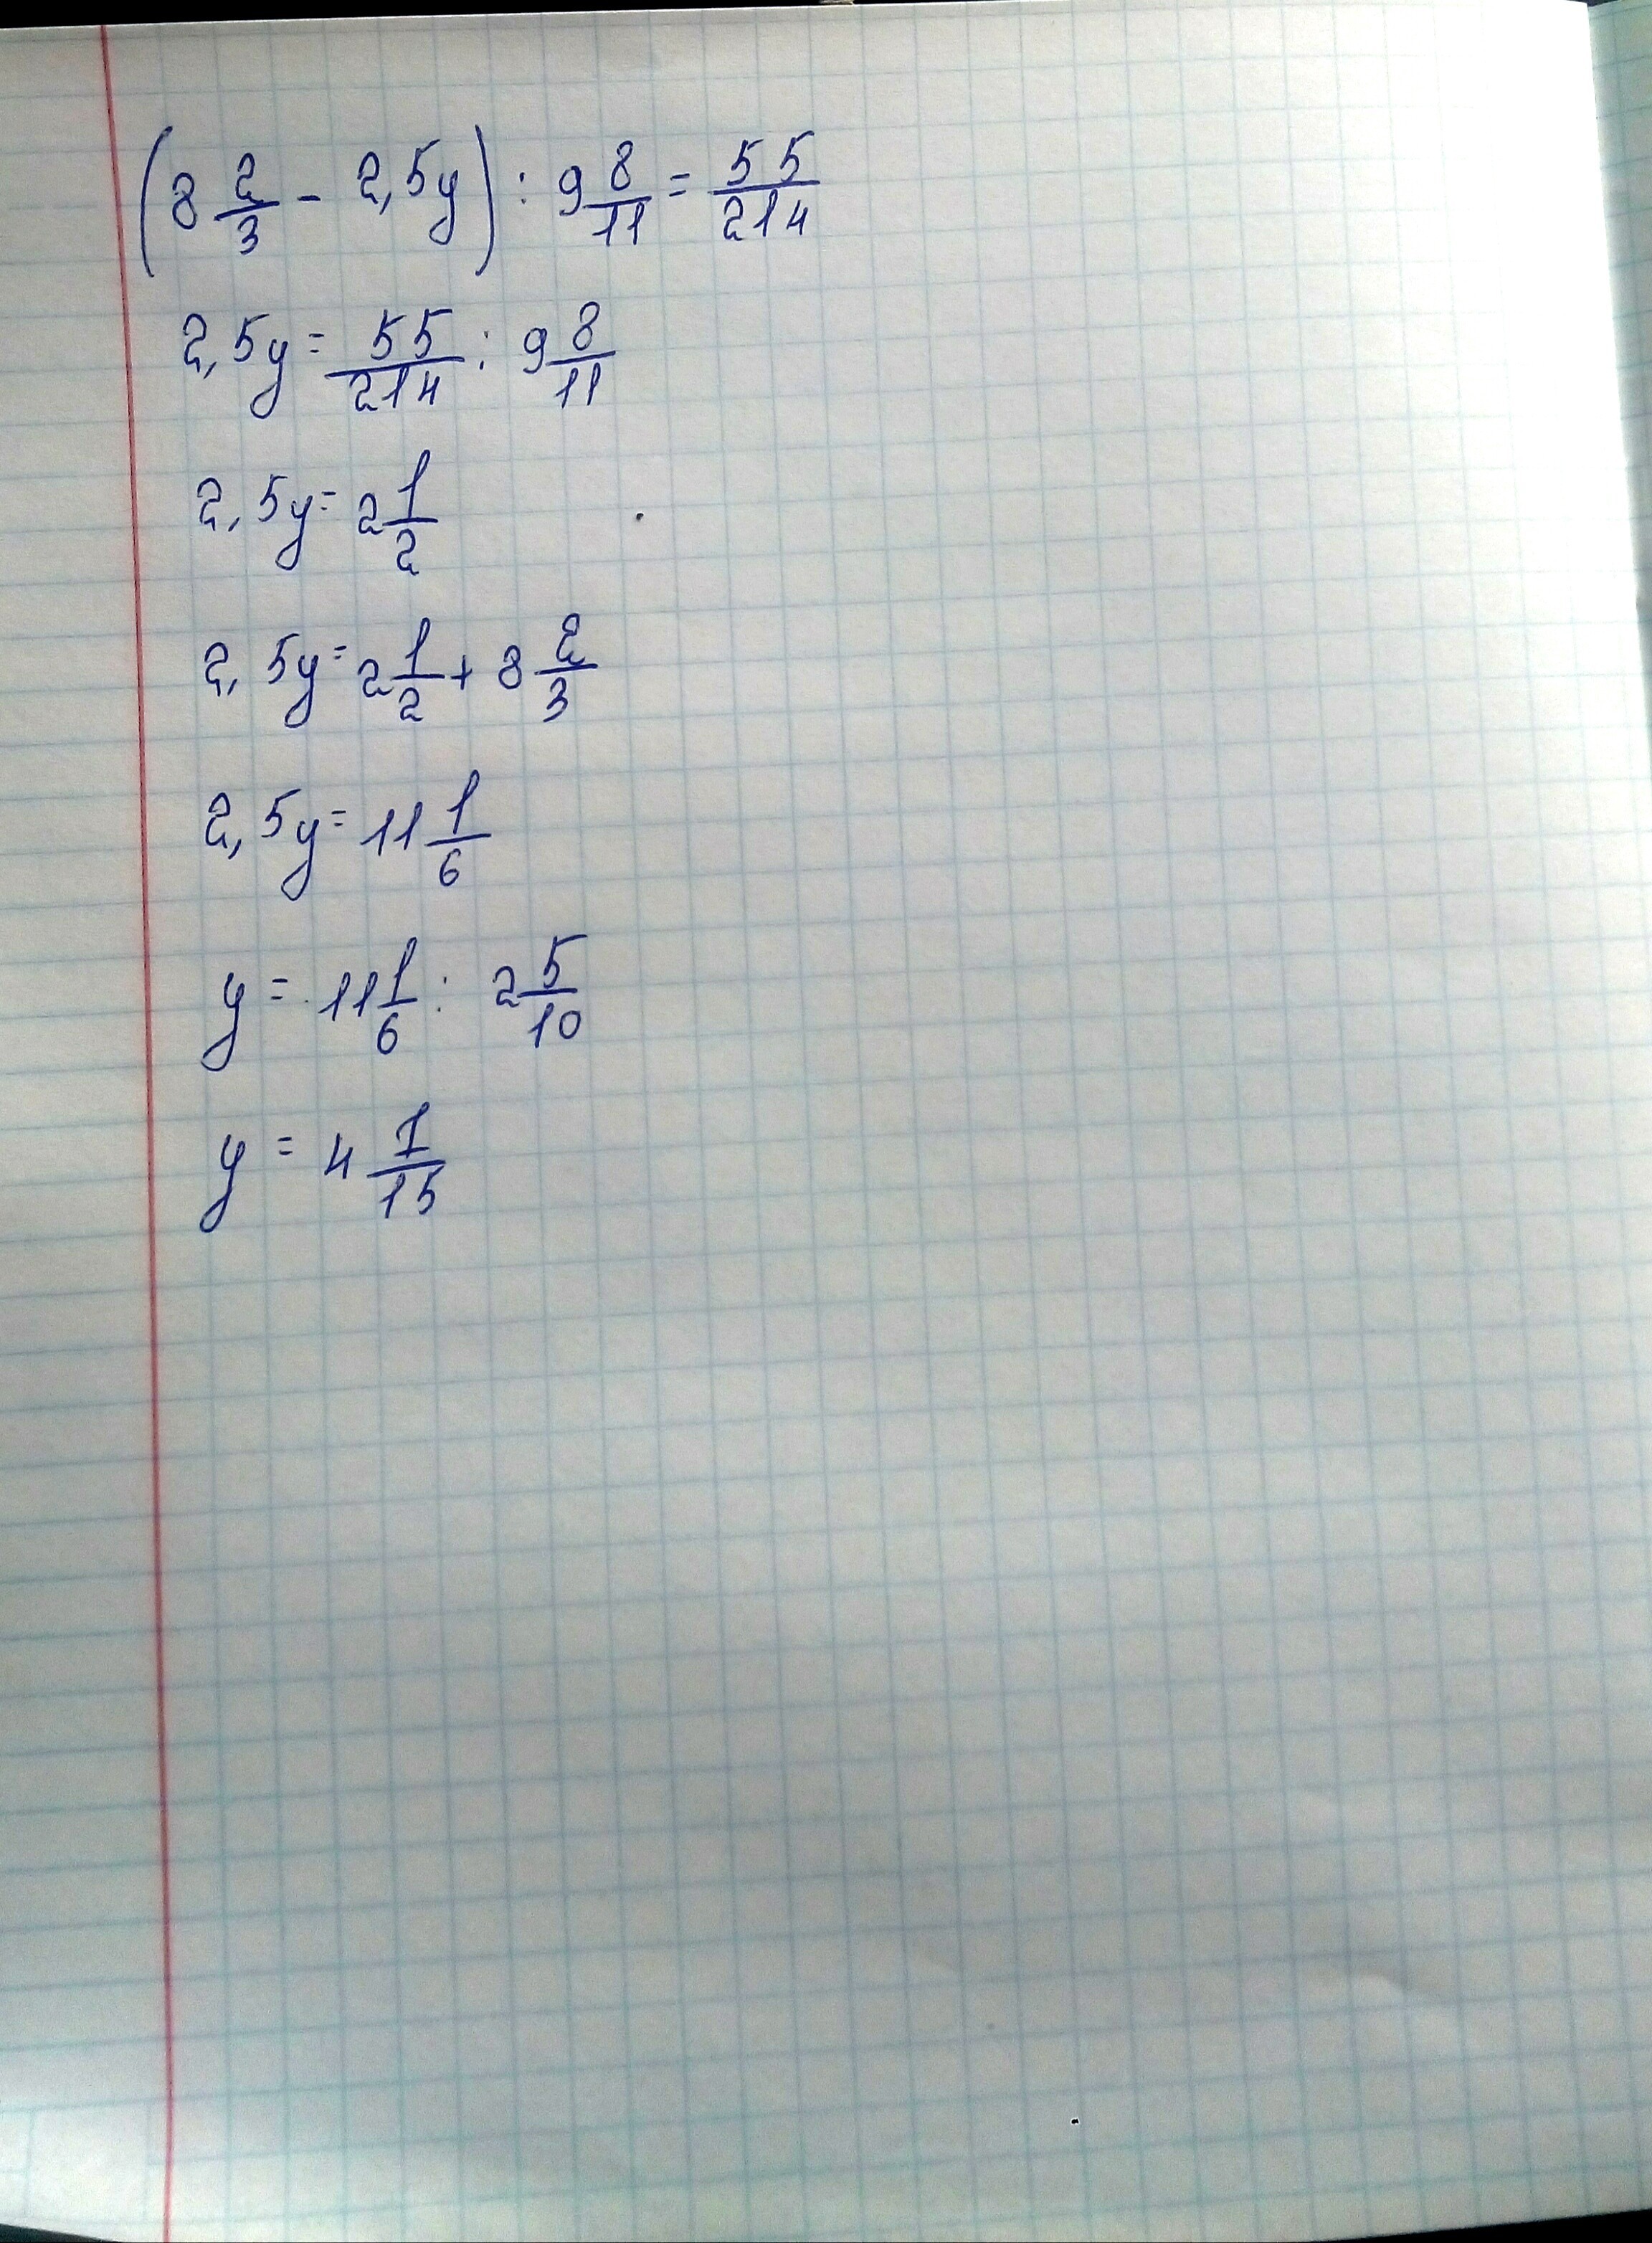 (8 2/3 - 2,5y) : 9 8/11 = 55/214
2,5y = 55/214 : 9 8/11
2,5y = 2 1/2
2,5y = 2 1/2 + 8 2/3
2,5y = 11 1/6
y = 11 1/6 : 2 5/10
y = 4 7/15